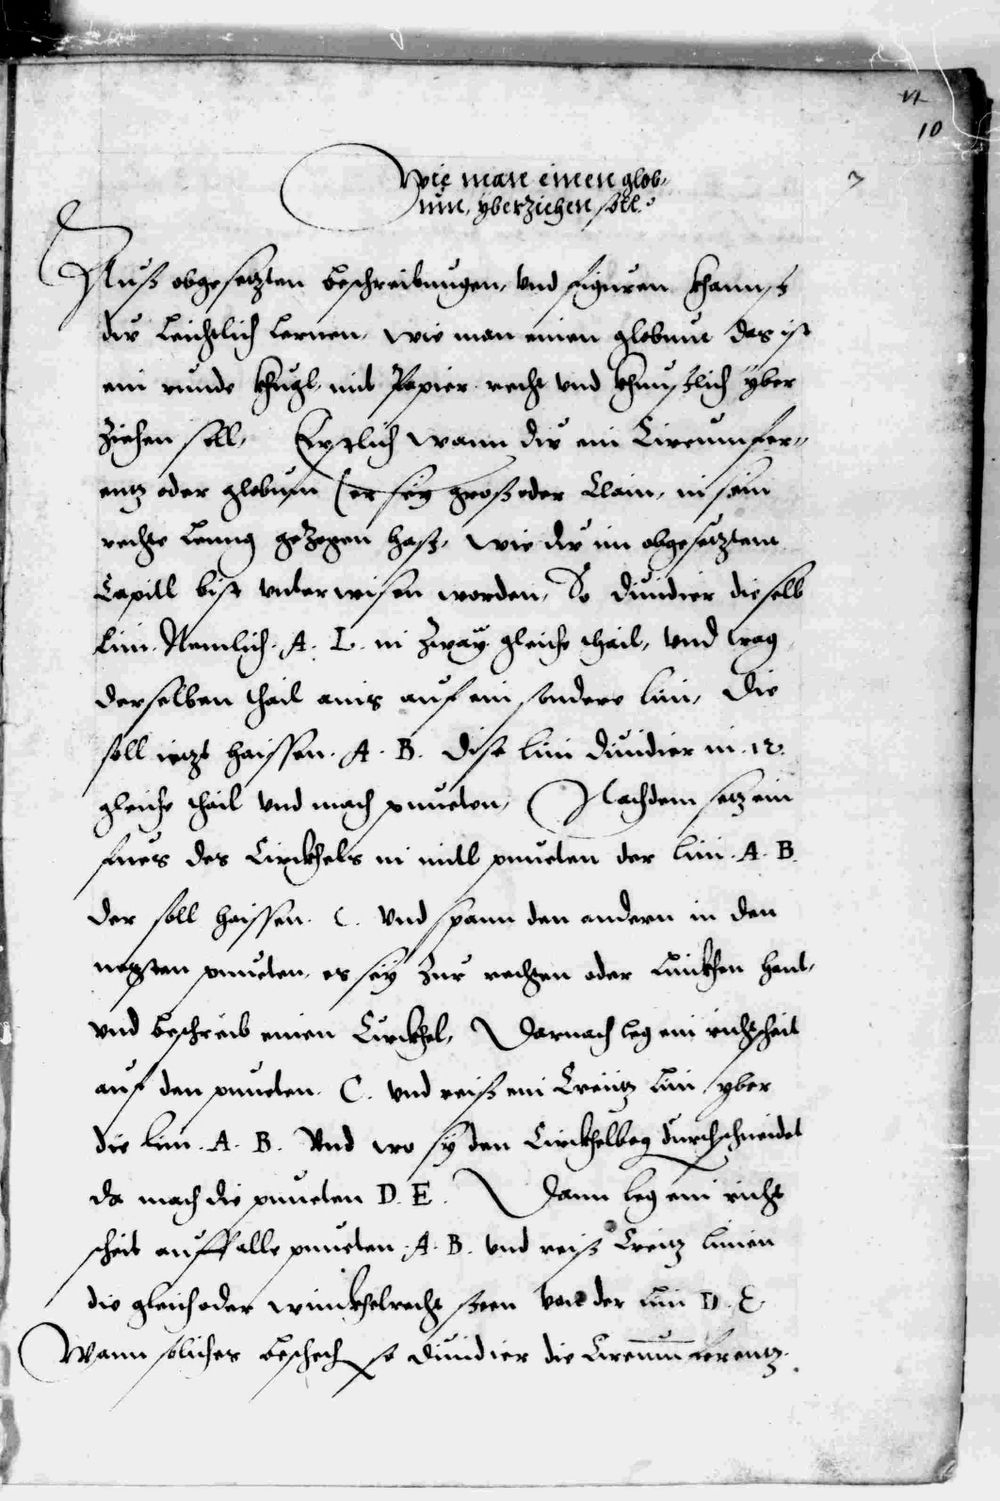 10
Wie man einen glob-
um, yberziehen soll.
Auß obgesetzten beschreibungen, vnd figuren khannst
du leichtlich lernen, wie man einen globum das ist
ein runde khugl, mit Papier recht vnd khunstlich yber
ziehen soll, Erstlich wann du ein Circumfer-
entz oder globum (er sey groß oder Clain, in sein
rechte leung gezogen hast, wie du im obgesetztem
Capitl bist vnterwisen worden, So diuidier dieselb
lini. Nemlich. A. L. in zway gleiche thail, vnd trag
derselben thail ains auf ein sondere lini, die
soll ietzt haissen. A. B. dise lini diuidier in. 12.
gleiche thail vnd mach puncten, Nachdem setz ein
fues des Circkhels in mitl puncten der lini. A. B.
der soll haissen. C. vnd spann den andern in den
negsten puncten, es sey zur rechten oder linckhen hant,
vnd beschreib einen Circkhel, Darnach leg ein richtscheit
auf den puncten. C. vnd reiß ein Creutz lini yber
die lini. A. B. Vnd wo sy den Circkhelbog durchschneidet
da mach die puncten D. E. Dann leg ein richt
scheit auff alle puncten. A. B. vnd reiß Creitz linien
die gleich oder winckhelrecht steen von der lini D. E
Wann soliches beschech so diuidier die Circumferentz.